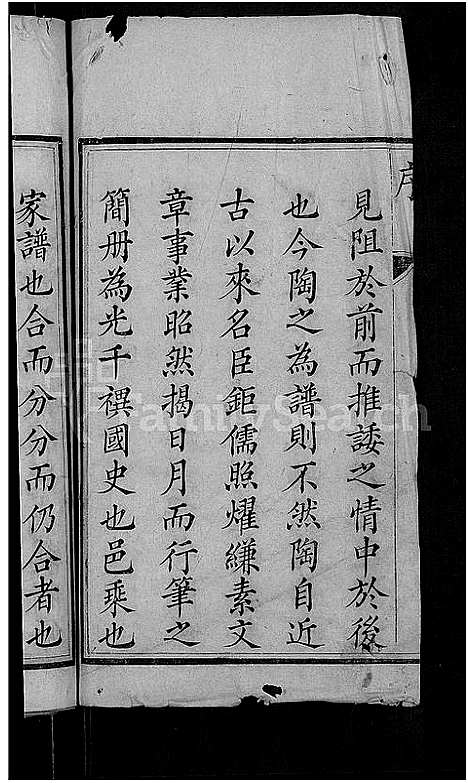 序
見阻於前而推諉之情中於後
也今陶之為譜則不然陶自近
古以來名臣鉅儒照耀縑素文
章事業昭然揭日月而行筆之
簡册為光千禩國史也邑乘也
家譜也合而分分而仍合者也
FamilySearch